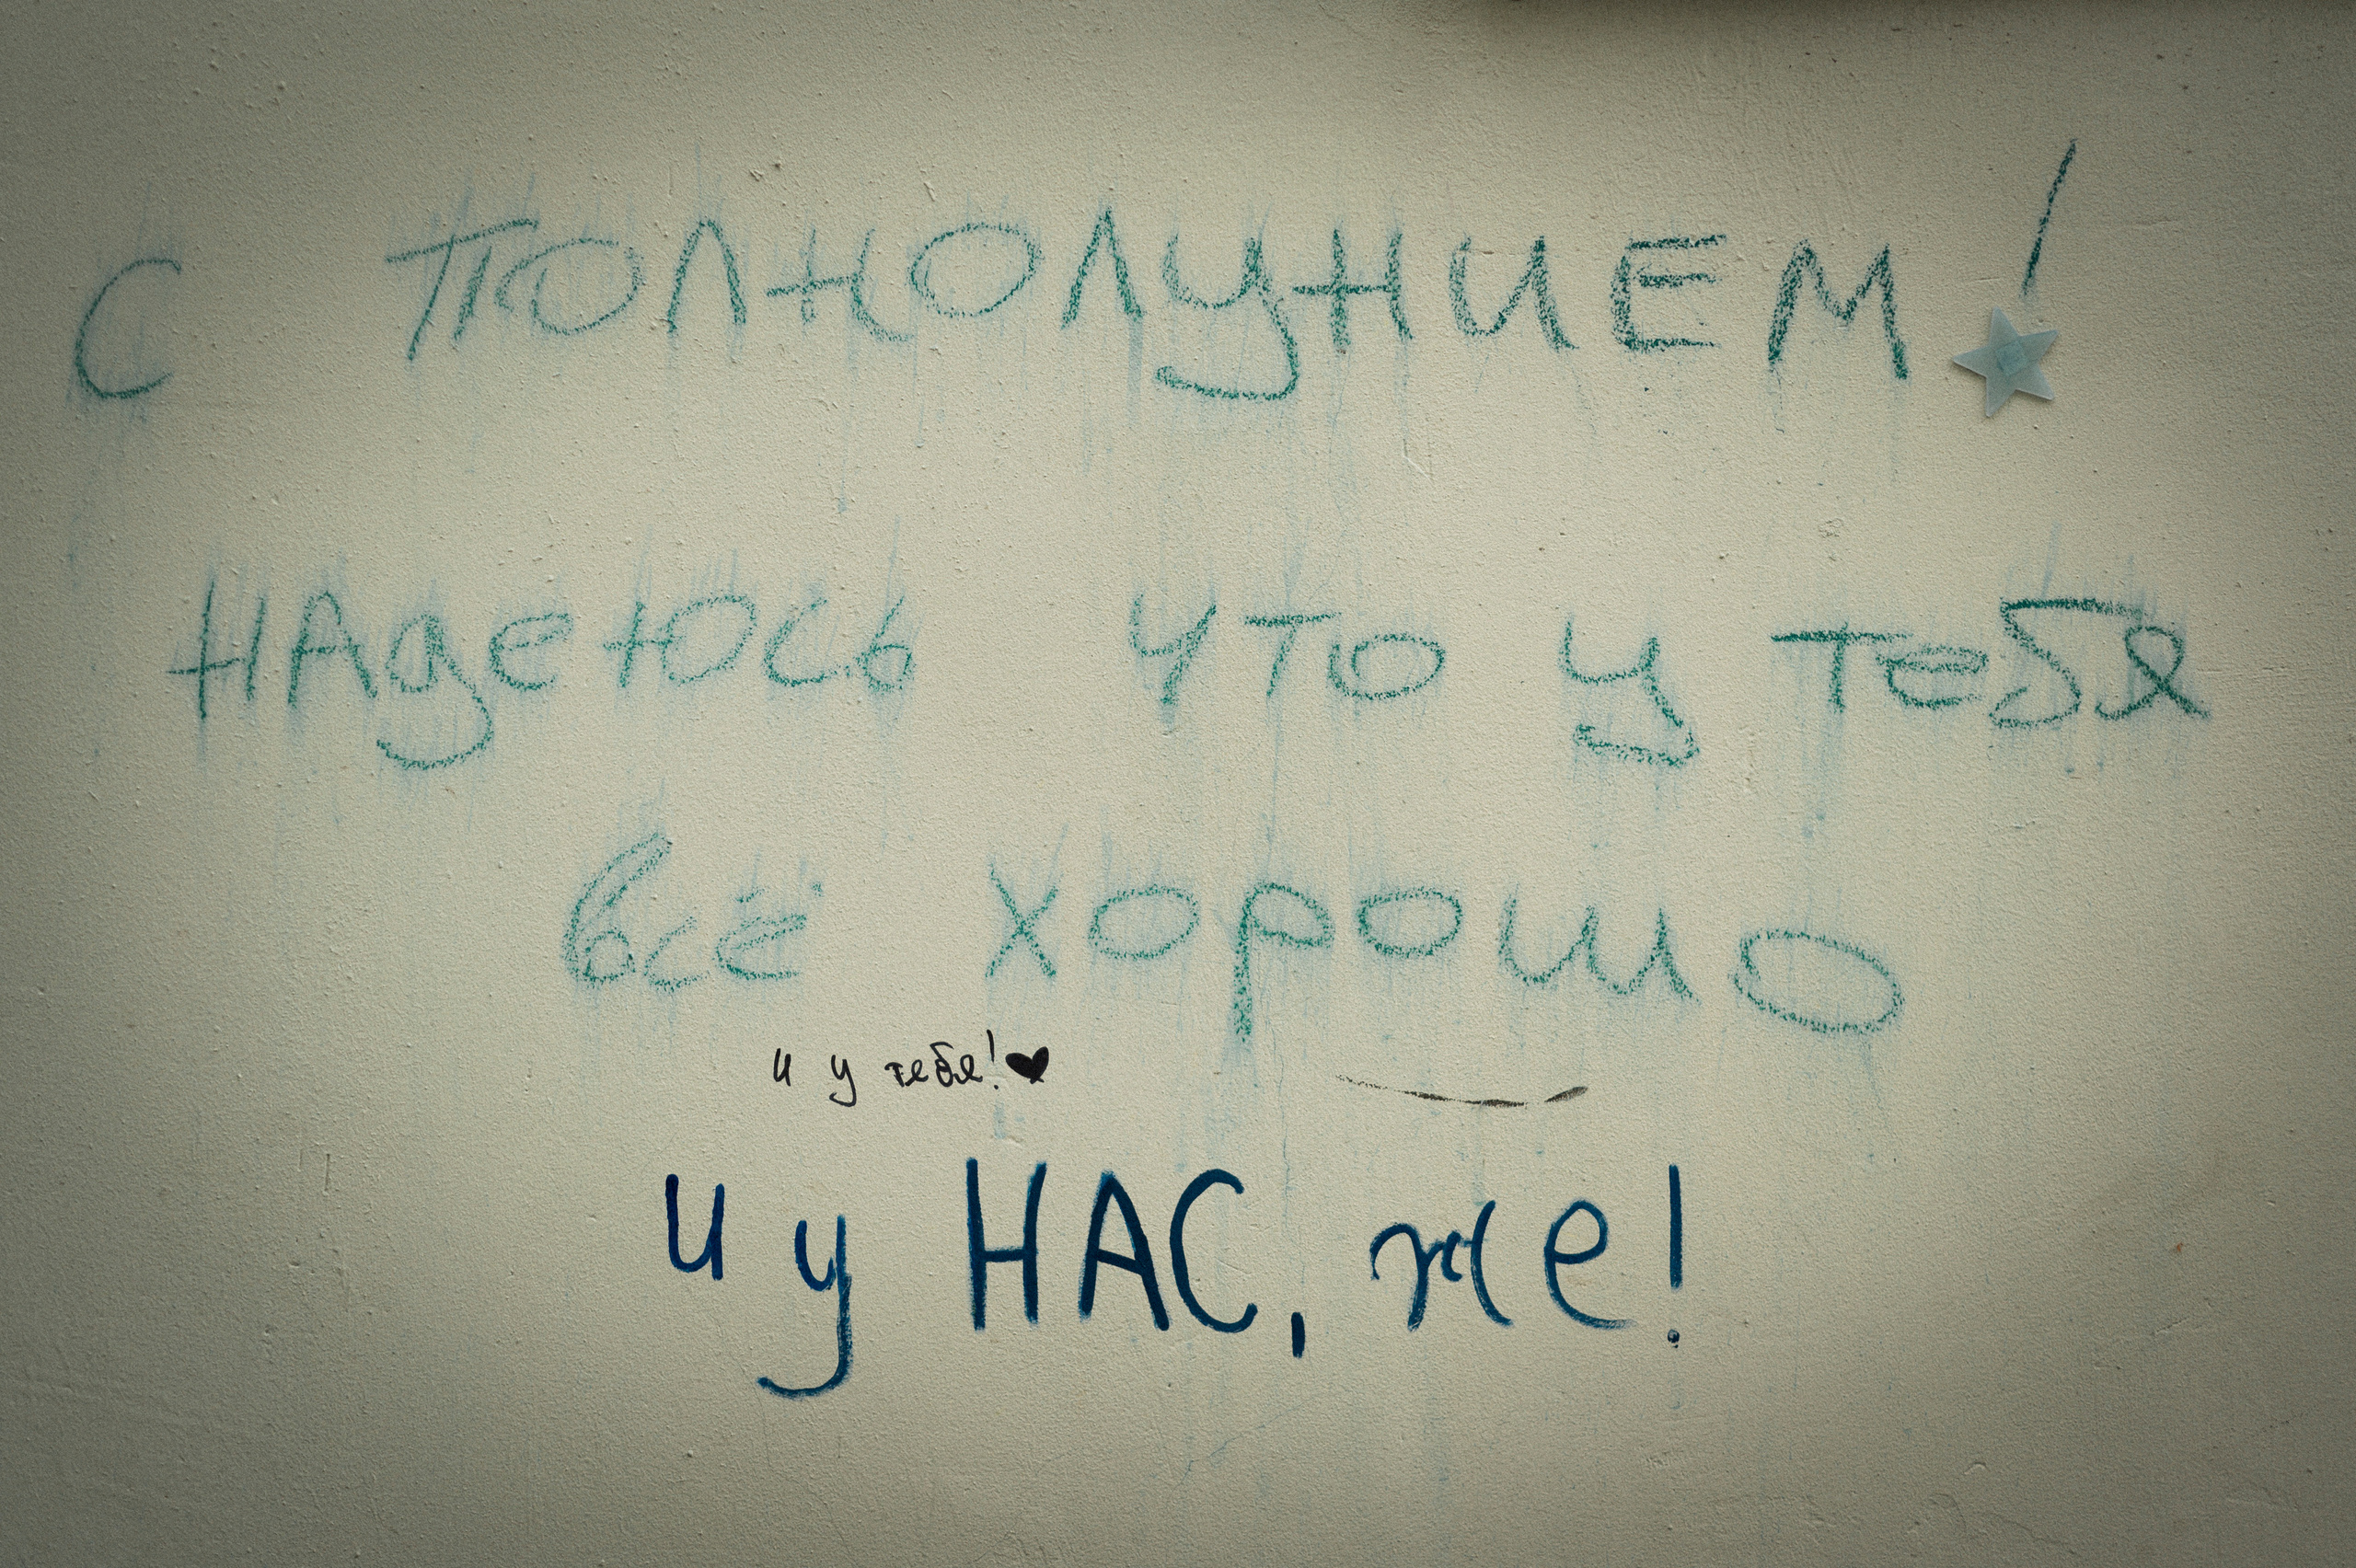 С ПОЛНОЛУНИЕМ!
НАдеЮсь что у тебя
всё хорошо
и у тебя! ♥
и у НАС, же!